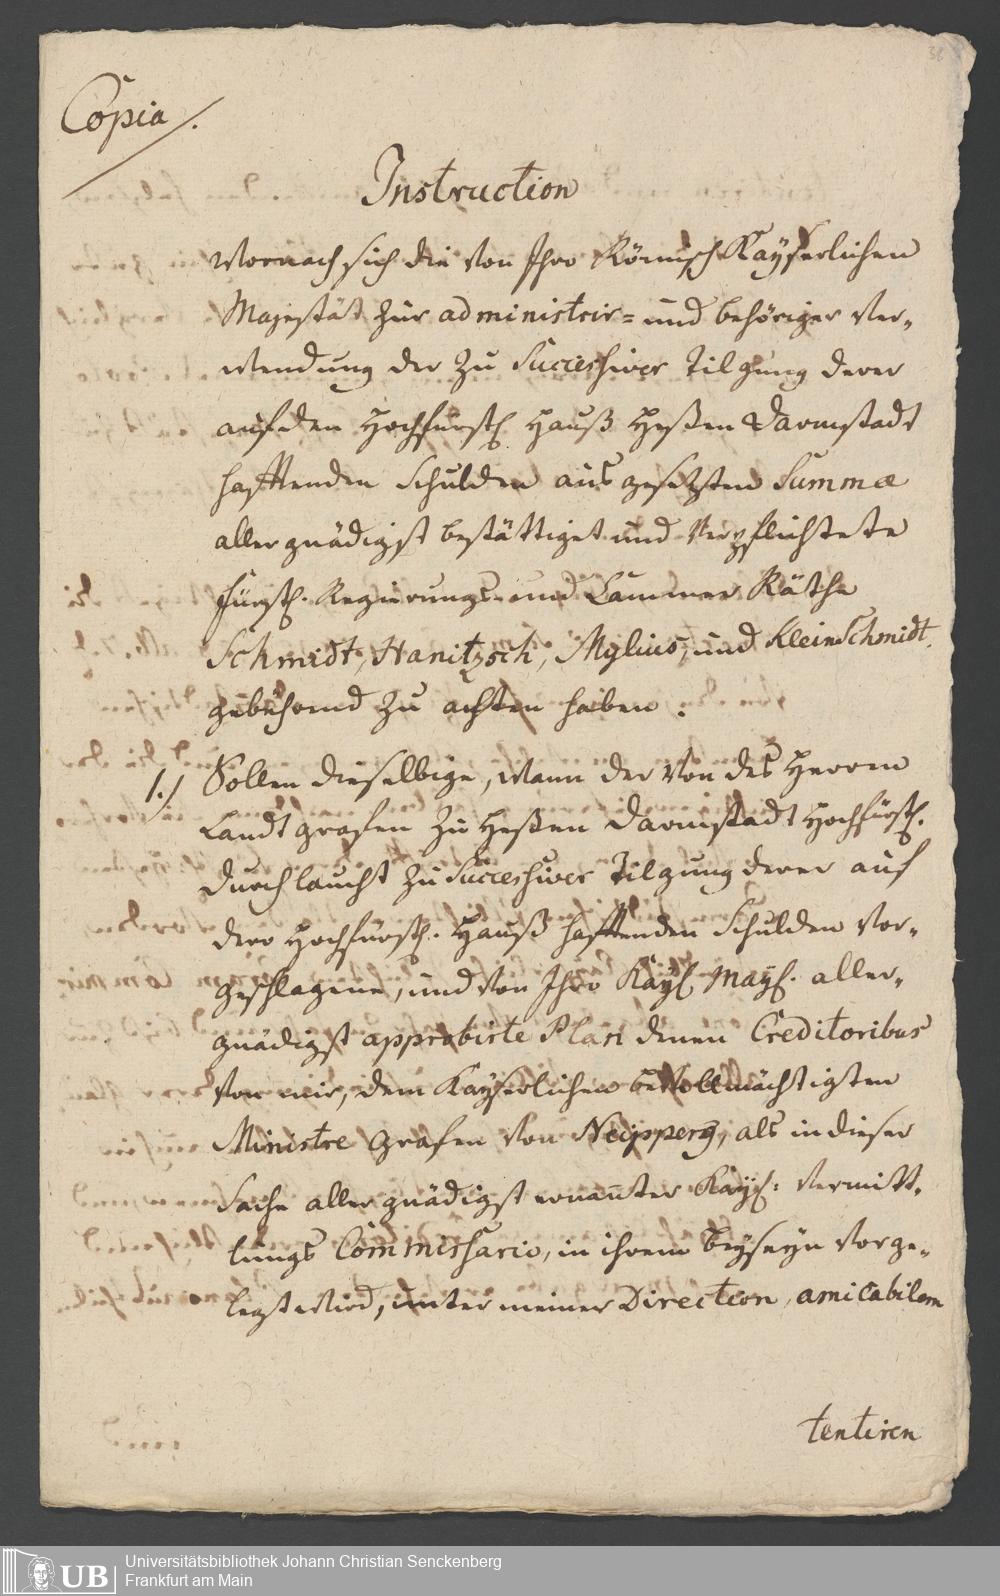 38
Copia
Instruction
Wornach sich die von Ihro Römisch Kayserlichen
Majestät zur administrir= und behöriger Ver-
wendung der zu Successiver Tilgung derer
auf den Hochfürstl. Hauß Heßen Darmstadt
hafftenden Schulden ausgesetzten Summæ
allergnädigst bestättiget und Verpflichtete
Fürstl. Regierungs- und Cammer Räthe
Schmidt, Hanitzsch, Mylius, und KleinSchmidt.
gebührend zu achten haben.
1./ Sollen dieselbige, wann der von des Herren
Landtgrafen zu Heßen Darmstadt Hochfürstl.
Durchlaucht zu Successiver Tilgung derer auf
dero Hochfürstl. Hauß hafftenden Schulden vor-
geschlagene, und von Ihro Kayl. Mayl. aller-
gnädigst approbirte Plan denen Creditoribus
von mir, dem Kayserlichen bevollmächtigten
Ministre Grafen von Neipperg, als in dieser
Sache allergnädigst ernannter Kayl. Vermitt-
lungs Commissario, in ihrem Beyseyn vorge-
legt wird, unter meiner Direction, amicabilem
tentiren
UB Universitätsbibliothek Johann Christian Senckenberg
Frankfurt am Main